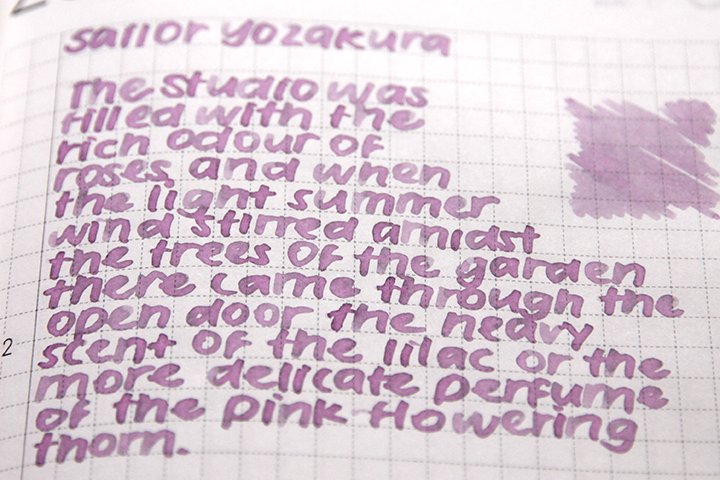 sailor yozakura
The studio was
filled with the
rich odour of
roses, and when
the light summer
wind stirred amidst
the trees of the garden
there came through the
open door the heavy
scent of the lilac or the
more delicate perfume
of the pink-flowering
thorn.
2